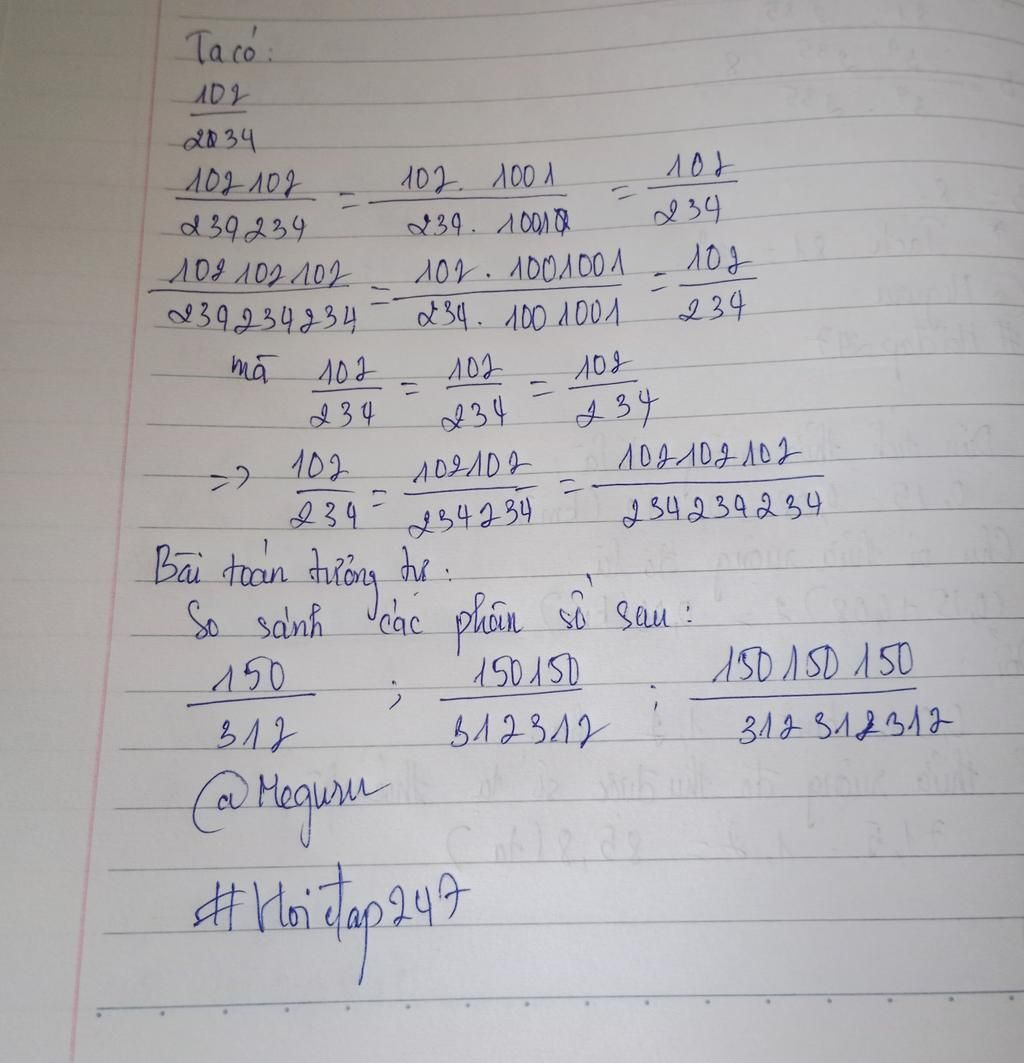 Ta có:
102/234
102102/234234 = 102.1001/234.1001 = 102/234
102102102/234234234 = 102.1001001/234.1001001 = 102/234
mà 102/234 = 102/234 = 102/234
=> 102/234 = 102102/234234 = 102102102/234234234
Bài toán tương tự:
So sánh các phân số sau:
150/312 ; 150150/312312 ; 150150150/312312312
@Meguru
#Hoidap247